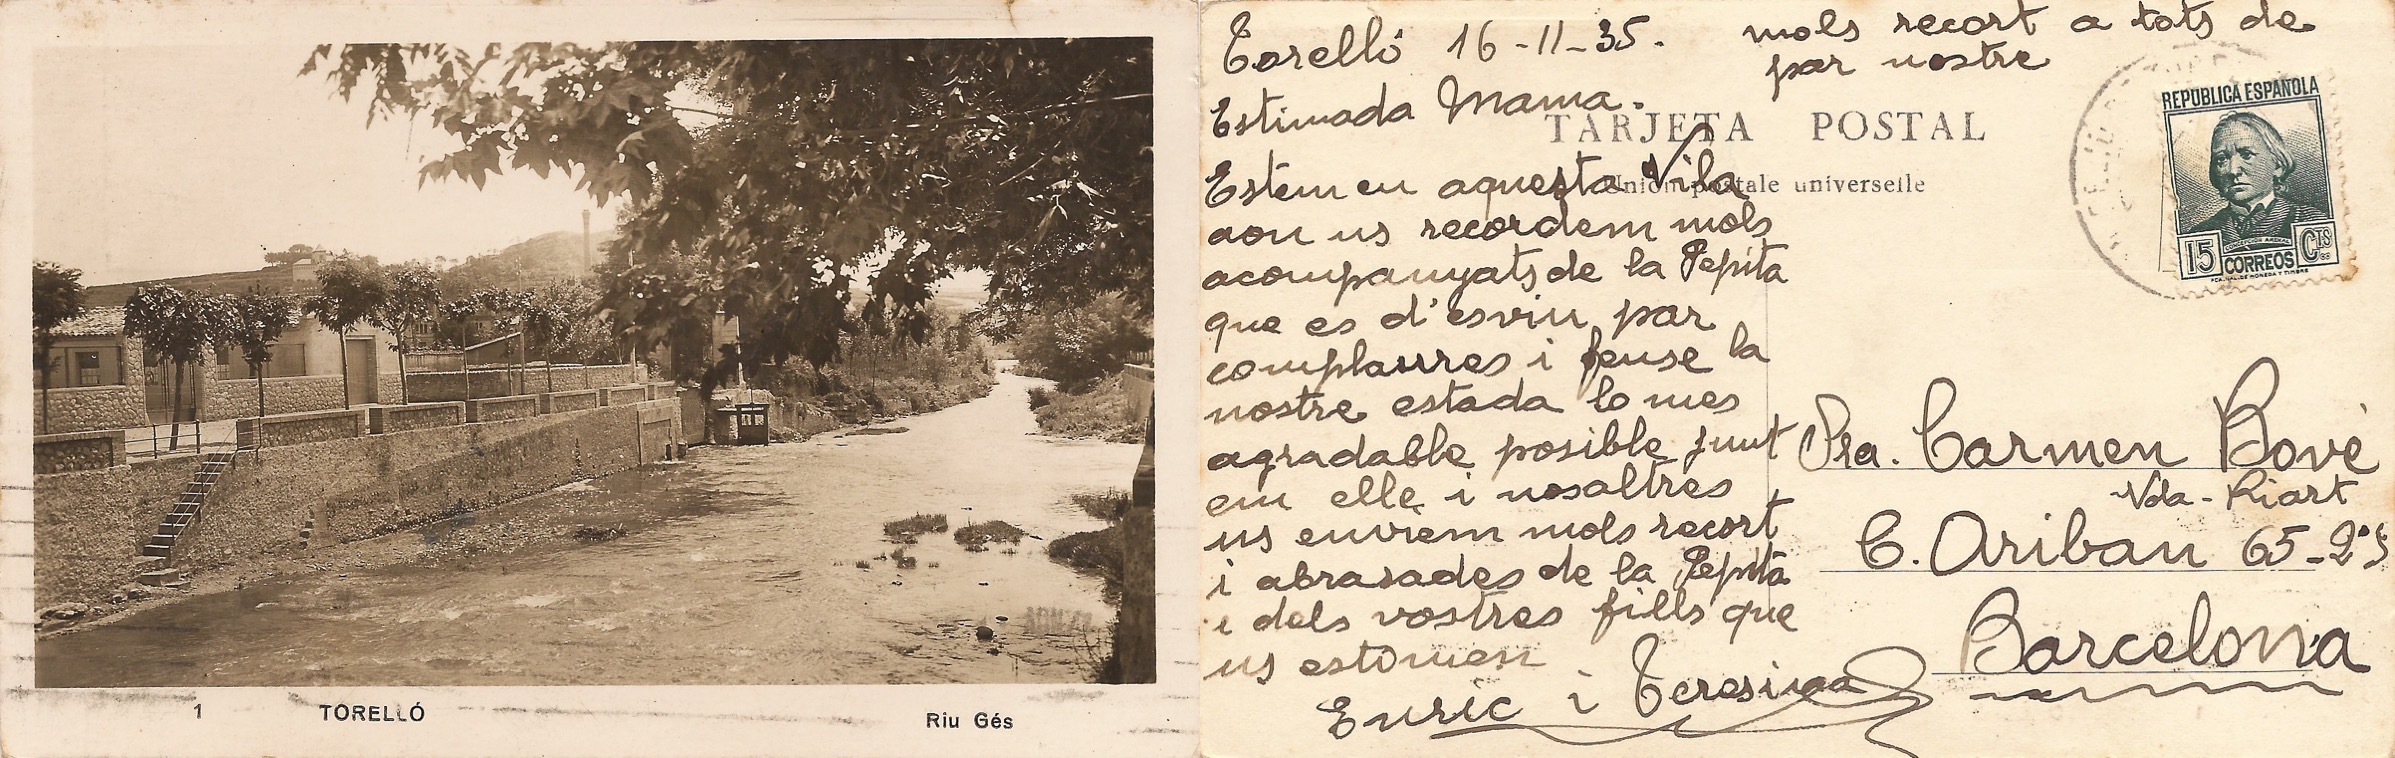 1 TORELLÓ Riu Gés
Torelló 16-11-35.
mols recort a tots de
par nostre
Estimada Mama.
TARJETA POSTAL
Union postale universelle
REPUBLICA ESPAÑOLA
CONCEPCION ARENAL
15 CORREOS CTS
Estem en aquesta Vila
aon us recordem mols
acompanyats de la Pepita
que es d'esviu par
complaures i fense la
nostre estada lo mes
agradable posible junt
em elle i nosaltres
us enviem mols recort
i abrasades de la Pepita
i dels vostres fills que
us estimen
Enric i Teresina
Sra. Carmen Bové
Vda - Riart
C. Ariban 65-2º
Barcelona